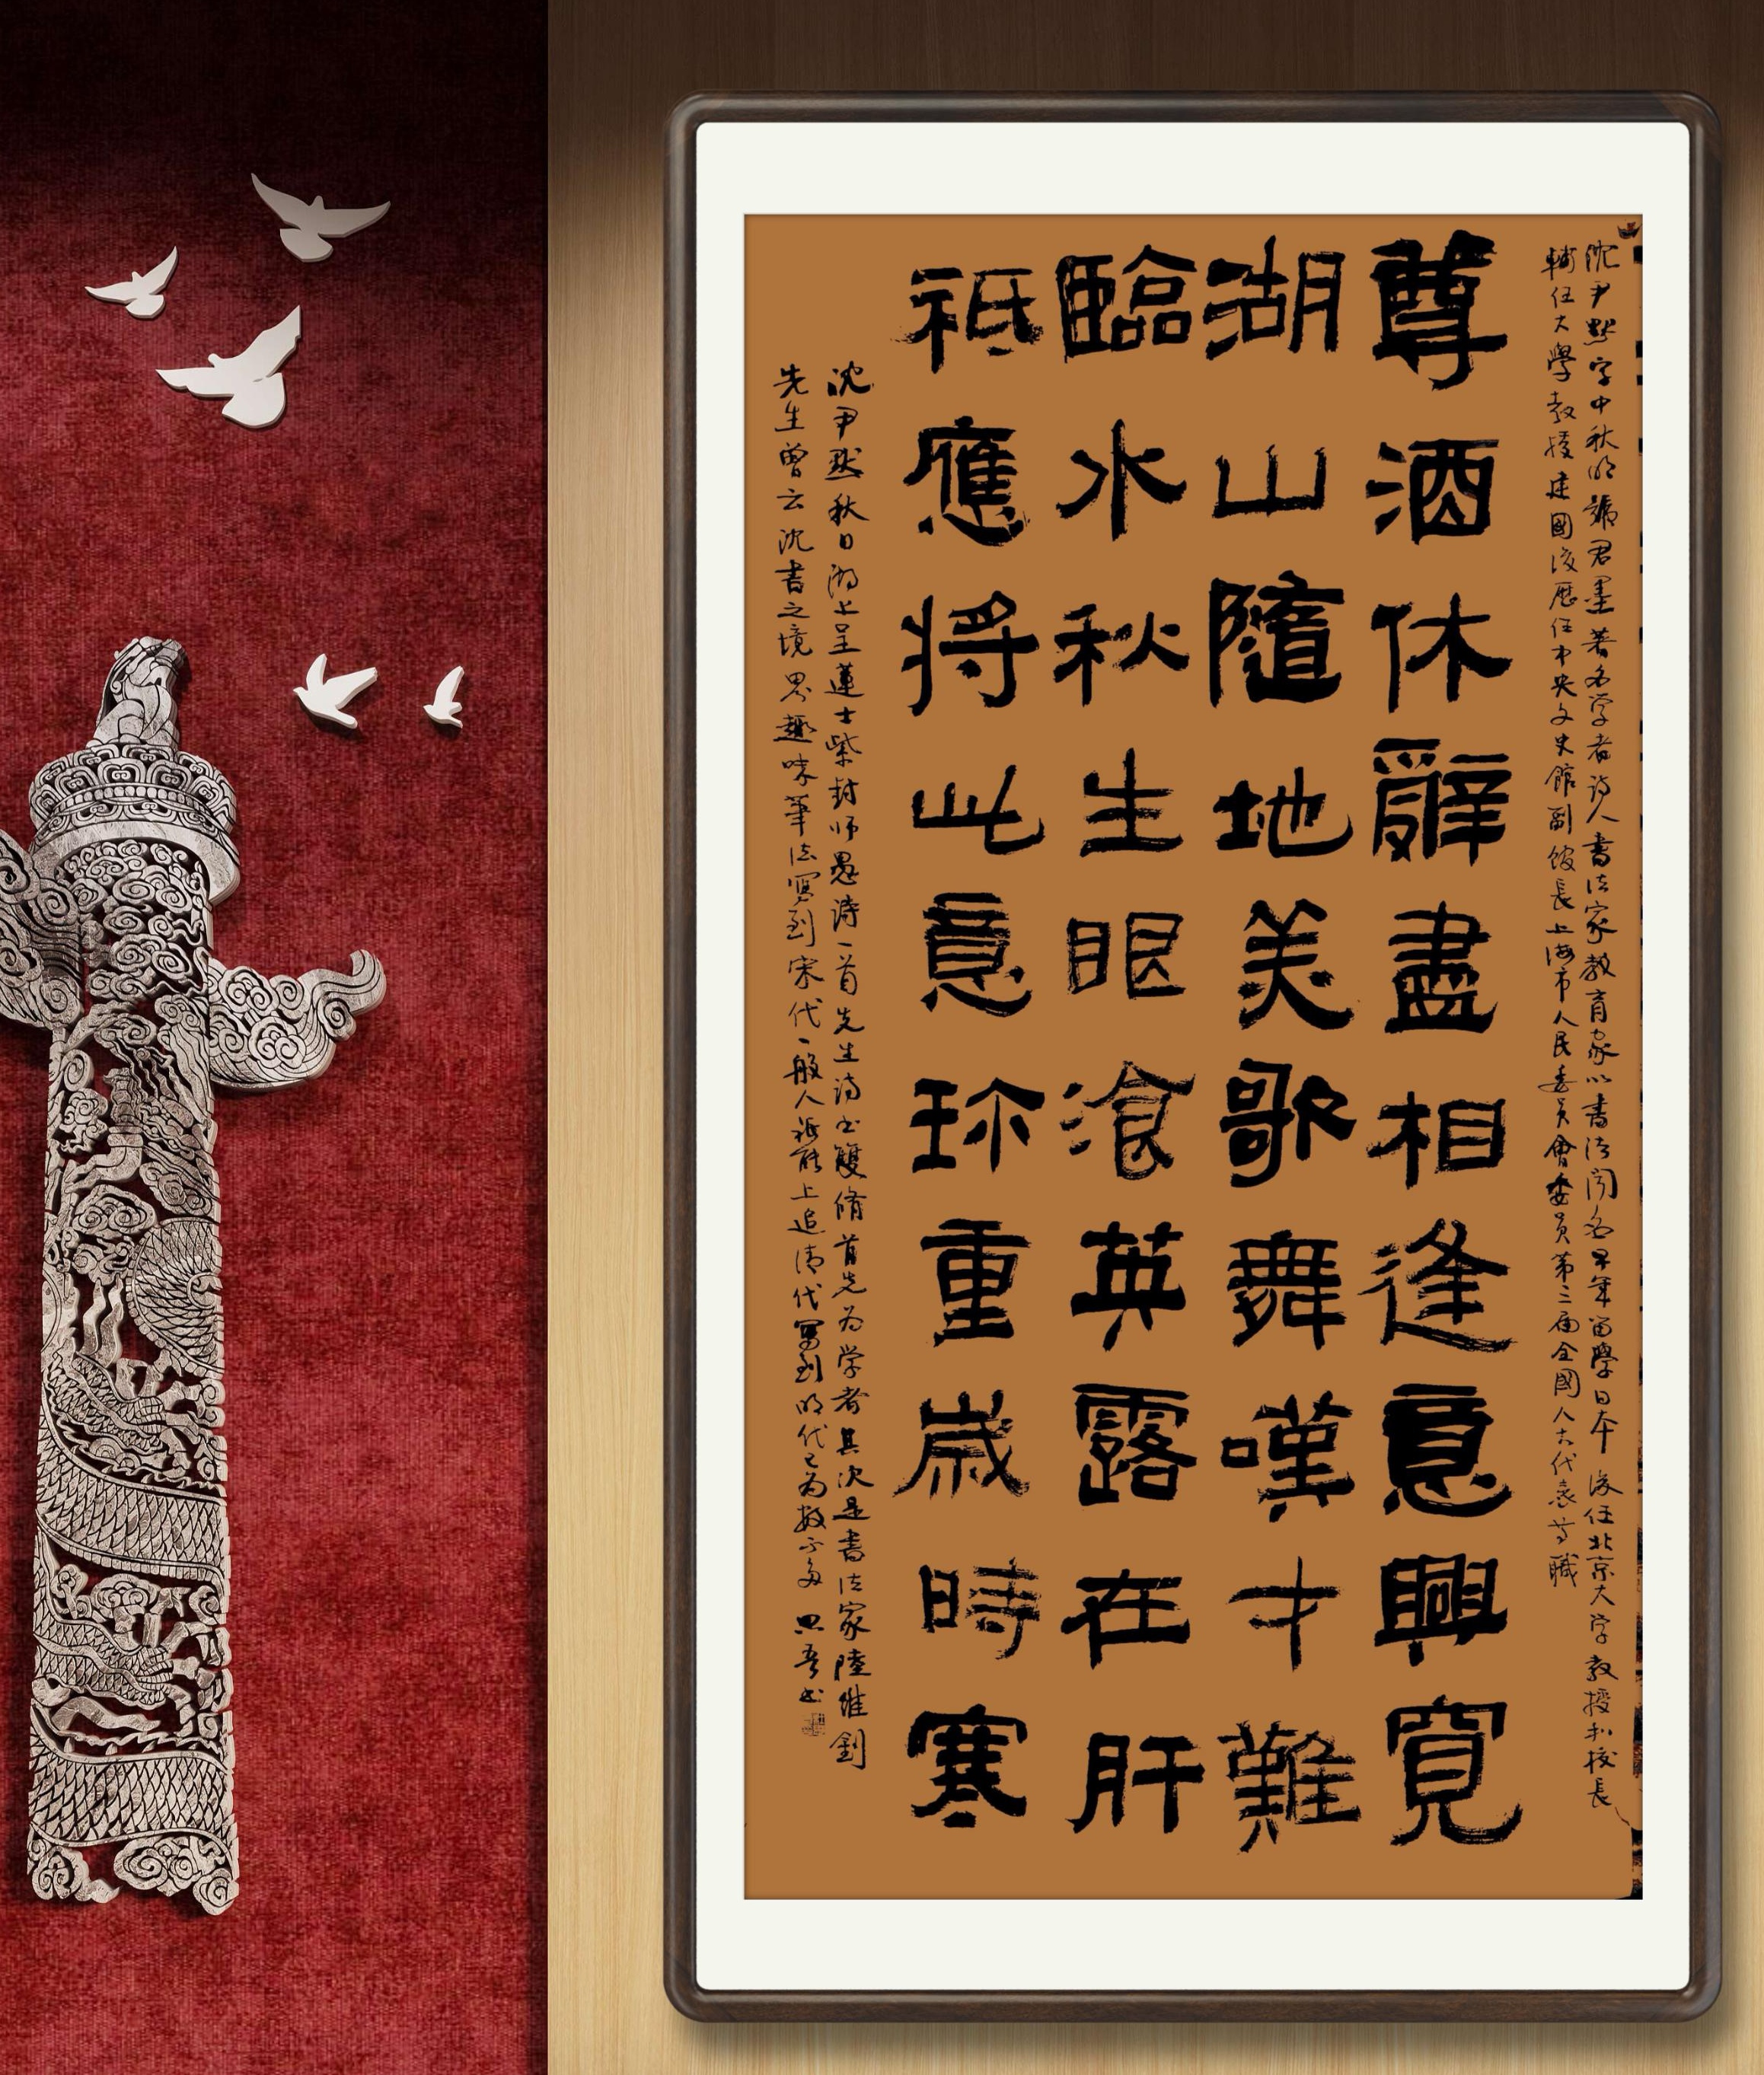 沈尹默字中秋明號君墨著名学者诗人書法家教育家以書法闻名早年留學日本後任北京大学教授和校長
輔仁大學教授建國後歷任中央文史館副館長上海市人民委員會委員第三届全國人大代表等職
尊酒休辭盡相逢意興寬
湖山隨地美歌舞嘆才難
臨水秋生眼飡英露在肝
祇應將此意珎重歲時寒
沈尹默秋日湖上呈蓮士紫封师愚詩一首先生詩书雙脩首先为学者其次是書法家陸維釗
先生曾云沈書之境界趣味筆法寫到宋代一般人祇能上追清代寫到明代已为数不多 思吾书